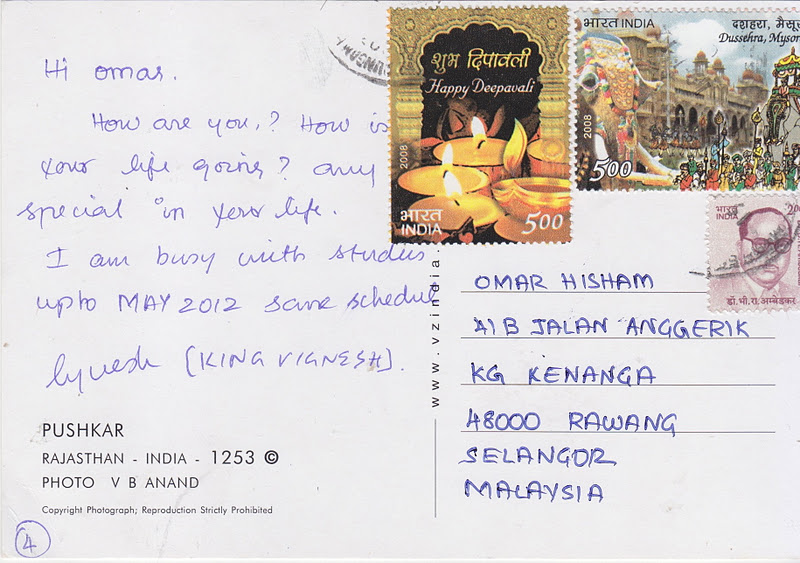 Hi omar.
How are you,? How is
your life going? any
special in your life.
I am busy with studies
upto MAY 2012 same schedule
(KING VIGNESH).
PUSHKAR
RAJASTHAN - INDIA - 1253 ©
PHOTO V B ANAND
Copyright Photograph; Reproduction Strictly Prohibited
4
www.vzindia.
शुभ दिपावली
Happy Deepavali
2008
भारत
INDIA
5.00
भारत INDIA
दशहरा, मैसूर
Dussehra, Mysor
2008
5.00
भारत
INDIA
डॉ. भी. रा. अम्बेडकर
OMAR HISHAM
A1B JALAN ANGGERIK
KG KENANGA
48000 RAWANG
SELANGOR
MALAYSIA